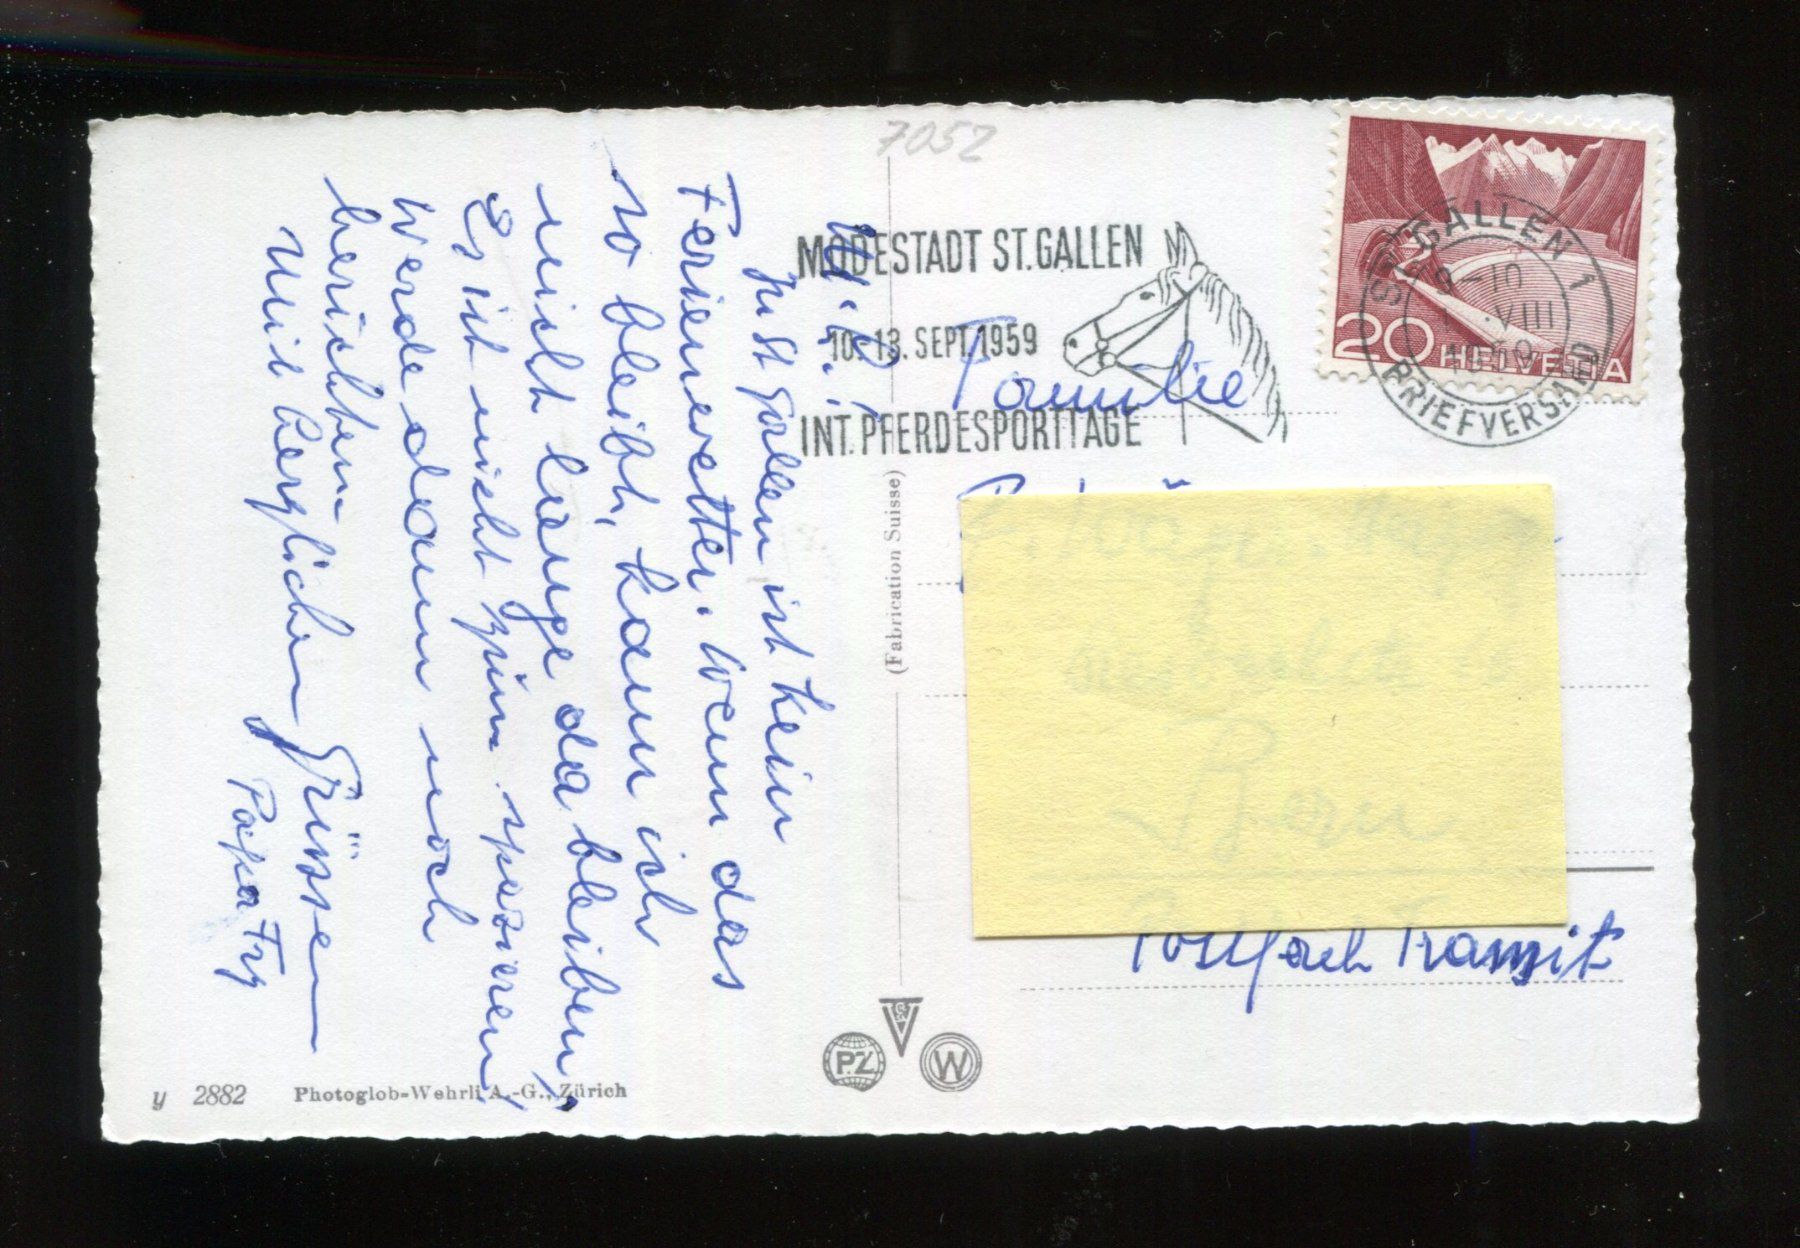 7052
M. L.!
In St. Gallen ist kein
Ferienwetter. Wenn das
so bleibt, kann ich
nicht lange da bleiben,
Es ist nicht zum spazieren,
Werde dann noch
berichten.
Mit herzlichen Grüssen
Papa Fry
MODESTADT ST. GALLEN
10.-13. SEPT. 1959
INT. PFERDESPORTTAGE
ST. GALLEN 1
BRIEFVERSAND
VIII
20 HELVETIA
Familie
Bern
Postfach Transit
(Fabrication Suisse)
P.Z.
W
y 2882 Photoglob-Wehrli A.-G., Zürich